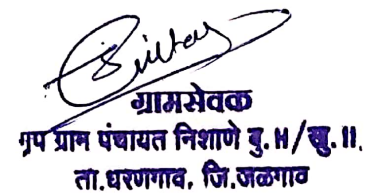 ग्रामसेवक
ग्रुप ग्राम पंचायत निशाणे बु.॥/खु.॥.
ता.धरणगाव, जि.जळगाव